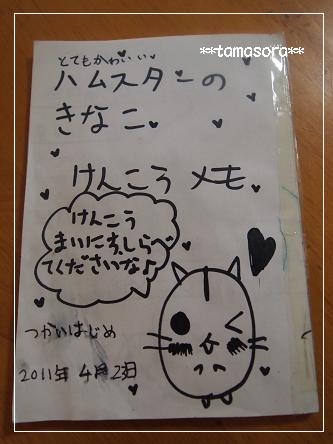 **tamasora**
とてもかわいい
ハムスターの
きなこ
けんころ メモ
けんこう
まいにちしらべ
てくださいな♪
つかいはじめ
2011年 4月2日